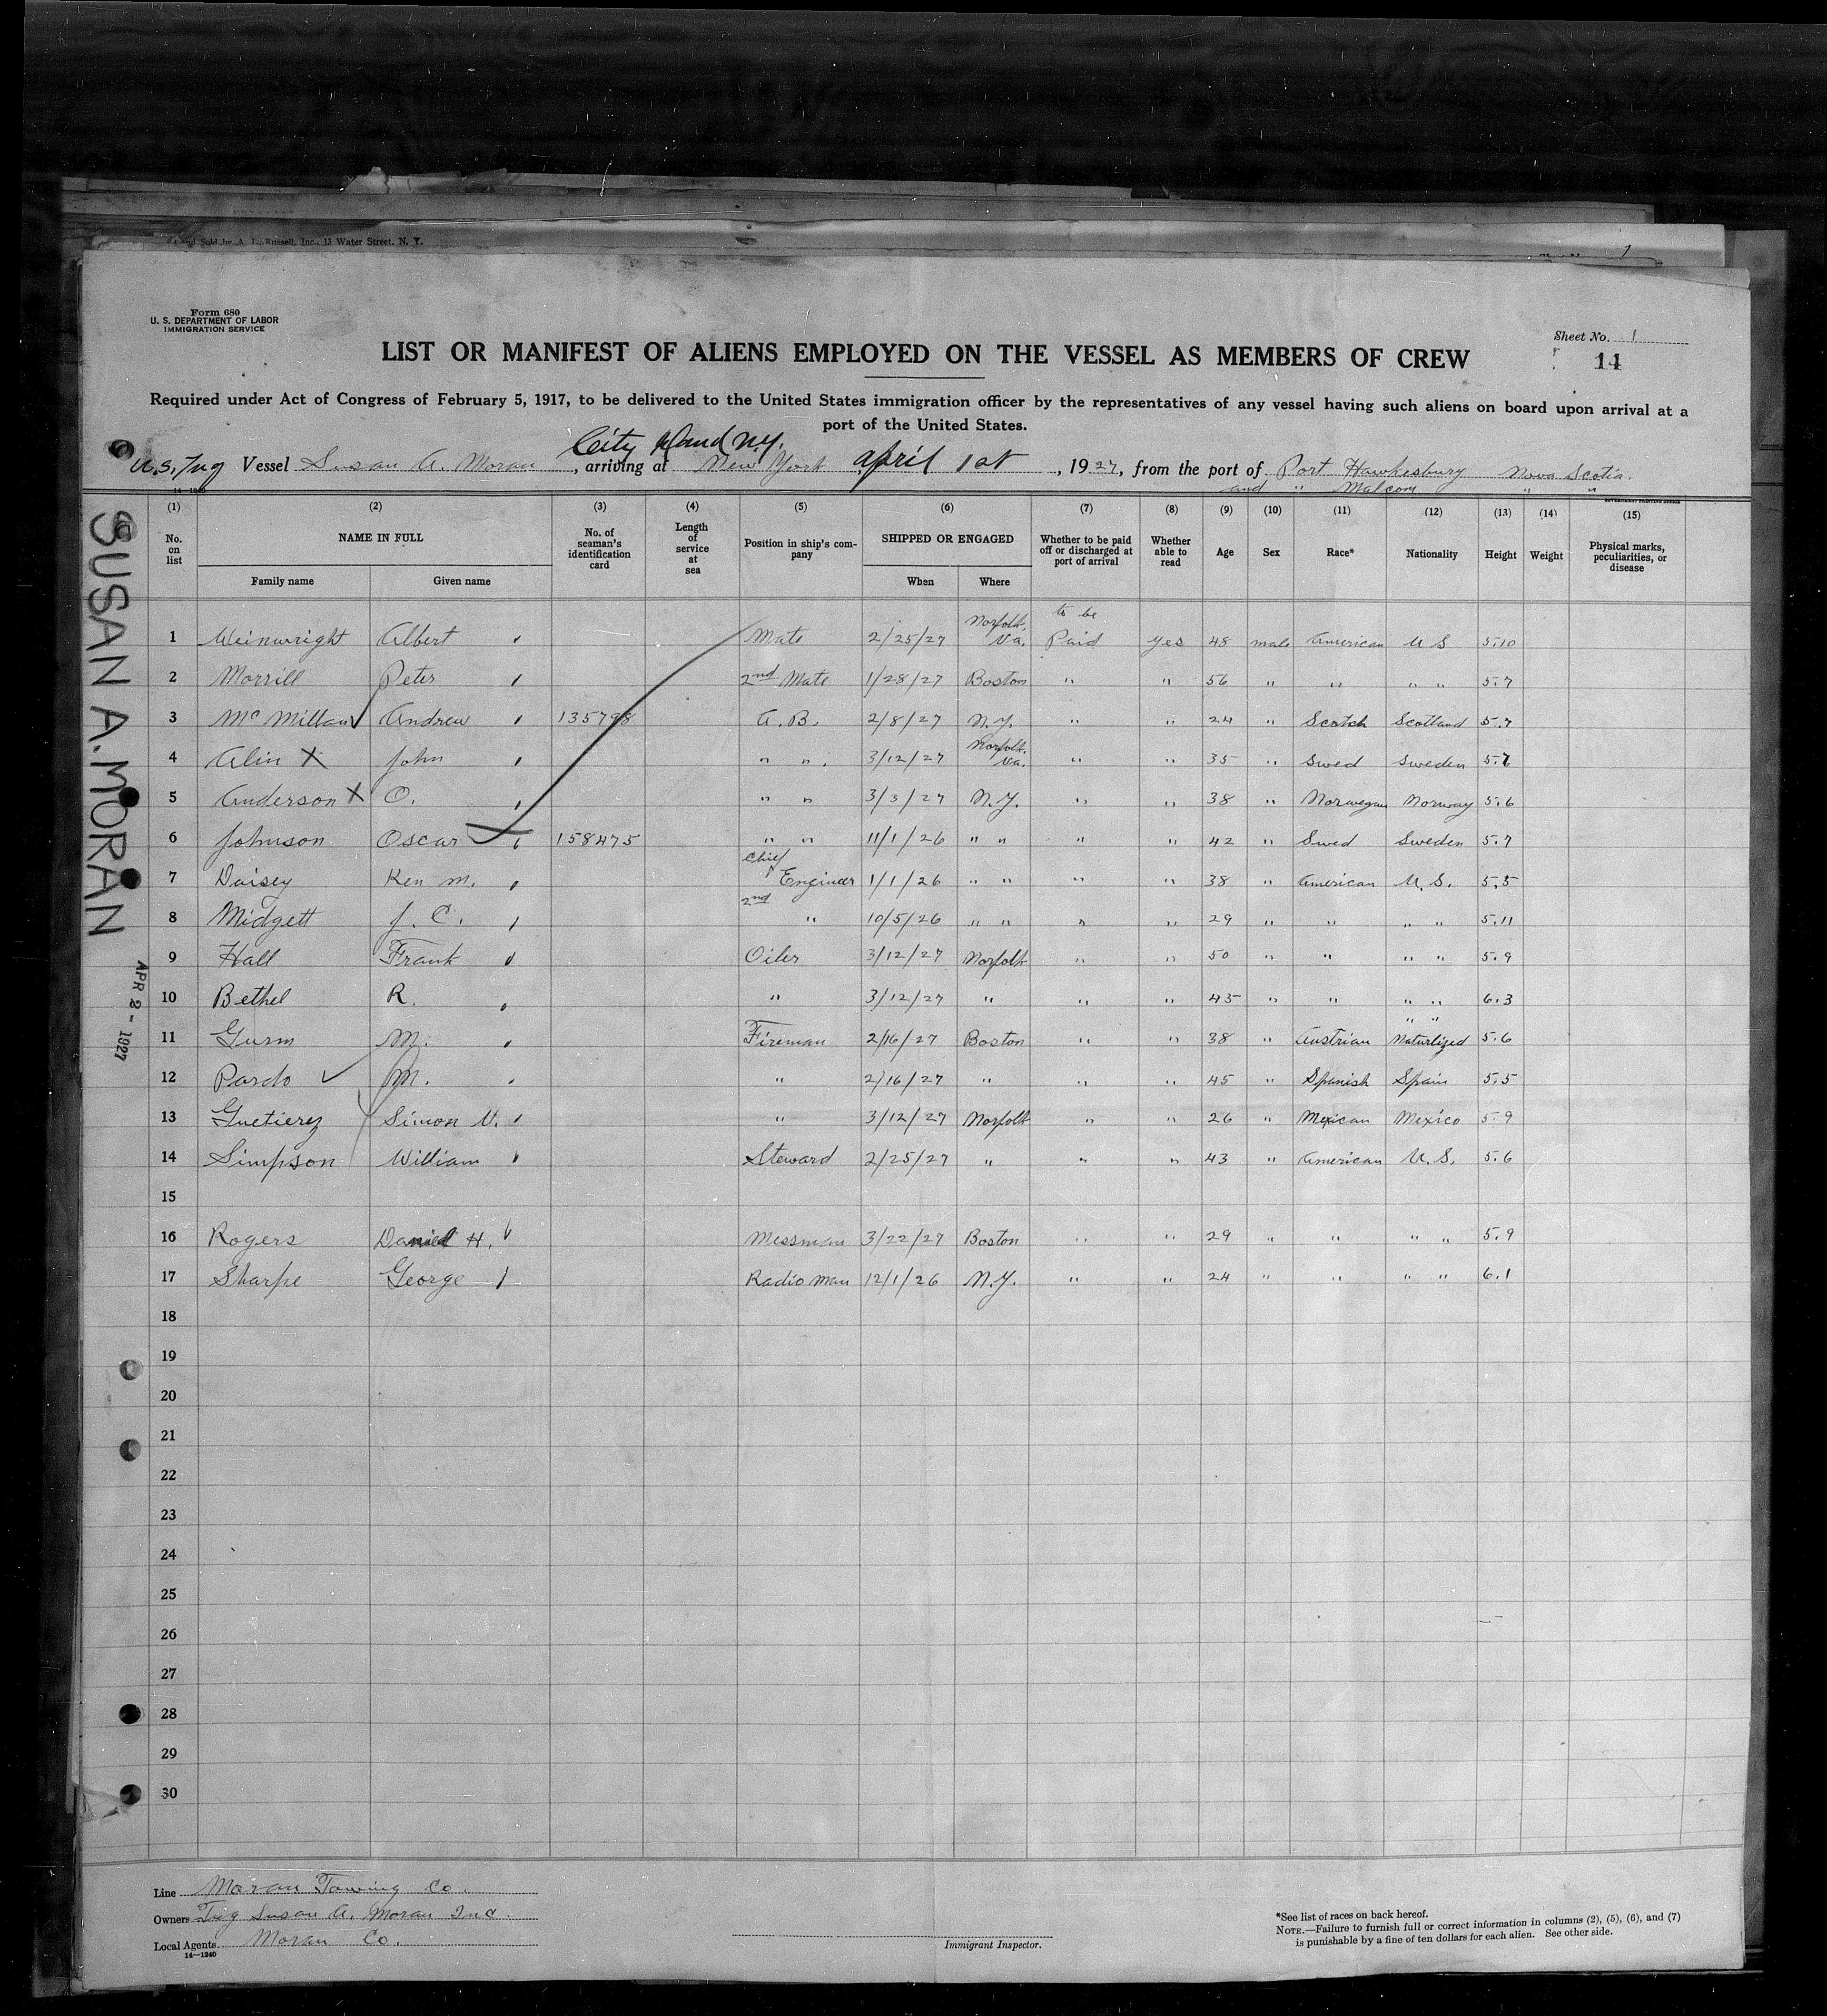 and Sold by A. L. Russell, Inc., 13 Water Street, N. Y.
1
Form 680
U. S. DEPARTMENT OF LABOR
IMMIGRATION SERVICE
Sheet No. 1
14
LIST OR MANIFEST OF ALIENS EMPLOYED ON THE VESSEL AS MEMBERS OF CREW
Required under Act of Congress of February 5, 1917, to be delivered to the United States immigration officer by the representatives of any vessel having such aliens on board upon arrival at a
port of the United States.
City Island N.Y.
U.S. Tug Vessel Susan A. Moran, arriving at New York April 1st, 1927, from the port of Port Hawkesbury Nova Scotia.
and " Malcom " "
14—1240
GOVERNMENT PRINTING OFFICE
SUSAN A. MORAN
APR 2 - 1927
(1) (2) (3) (4) (5) (6) (7) (8) (9) (10) (11) (12) (13) (14) (15)
No. on list NAME IN FULL No. of seaman's identification card Length of service at sea Position in ship's company SHIPPED OR ENGAGED Whether to be paid off or discharged at port of arrival Whether able to read Age Sex Race* Nationality Height Weight Physical marks, peculiarities, or disease
Family name Given name When Where
1 Weinwright Albert Mate 2/25/27 Norfolk, Va. to be Paid yes 48 male American U S 5.10
2 Morrill Peter 2nd Mate 1/28/27 Boston " " 56 " " " " 5.7
3 McMillan Andrew 135798 A.B. 2/8/27 N.Y. " " 24 " Scotch Scotland 5.7
4 Alin X John " " 3/12/27 Norfolk, Va. " " 35 " Swed Sweden 5.7
5 Anderson X O. " " 3/3/27 N.Y. " " 38 " Norwegan Norway 5.6
6 Johnson Oscar 158475 " " 11/1/26 " " " " 42 " Swed Sweden 5.7
7 Daisey Ken M. Chief Engineer 1/1/26 " " " " 38 " American U.S. 5.5
8 Midgett J. C. 2nd " 10/5/26 " " " " 29 " " " " 5.11
9 Hall Frank Oiler 3/12/27 Norfolk " " 50 " " " " 5.9
10 Bethel R. " 3/12/27 " " " 45 " " " " 6.3
11 Gurm M. Fireman 2/16/27 Boston " " 38 " Austrian " " Naturlized 5.6
12 Pardo M. " 2/16/27 " " " 45 " Spanish Spain 5.5
13 Guetierez Simon V. " 3/12/27 Norfolk " " 26 " Mexican Mexico 5.9
14 Simpson William Steward 2/25/27 " " " 43 " American U.S. 5.6
15
16 Rogers Daniel H. Messman 3/22/27 Boston " " 29 " " " " 5.9
17 Sharpe George Radio man 12/1/26 N.Y. " " 24 " " " " 6.1
18
19
20
21
22
23
24
25
26
27
28
29
30
Line Moran Towing Co.
Owners Tug Susan A. Moran Inc.
Local Agents Moran Co.
14—1240
Immigrant Inspector.
*See list of races on back hereof.
NOTE.—Failure to furnish full or correct information in columns (2), (5), (6), and (7)
is punishable by a fine of ten dollars for each alien. See other side.